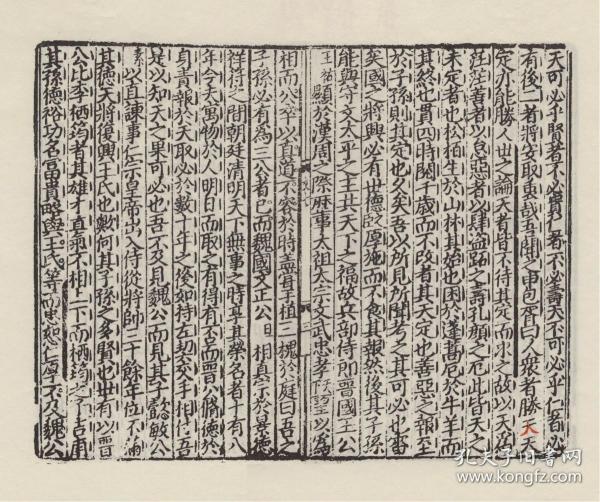 天可必乎賢者不必貴仁者不必壽天不可必乎仁者必
有後二者將安取衷哉吾聞之申包胥曰人衆者勝天天
定亦能勝人世之論天者皆不待其定而求之故以天爲
茫茫善者以怠惡者以肆盗跖之壽孔顏之厄此皆天之
未定者也松柏生於山林其始也困於蓬蒿厄於牛羊而
其終也貫四時閱千歲而不改者其天定也善惡之報至
於子孫則其定也久矣吾以所見所聞考之其可必也審
矣國之將興必有世德之臣厚施而不食其報然後其子孫
能與守文太平之主共天下之福故兵部侍郎晉國王公
王祐顯於漢周之際歷事太祖太宗文武忠孝望以爲
相而公卒以直道不容於時蓋嘗手植三槐於庭曰吾
子孫必有爲三公者已而魏國文正公旦相真宗於景德
祥符之間朝廷清明天下無事之時享其榮名者十有八
年今夫寓物於人明日而取之有得有否而晉公脩德於
身責報於天取必於數十年之後如持左契交手相付吾
是以知天之果可必也吾不及見魏公而見其子懿敏公
素以直諫事仁宗皇帝出入侍從將帥三十餘年位不滿
其德天將復興王氏也歟何其子孫之多賢也世有以晉
公比李栖筠者其雄才直氣不相上下而栖筠之子吉甫
其孫德裕功名富貴略與王氏等而忠恕仁厚不及魏公
孔夫子旧书网